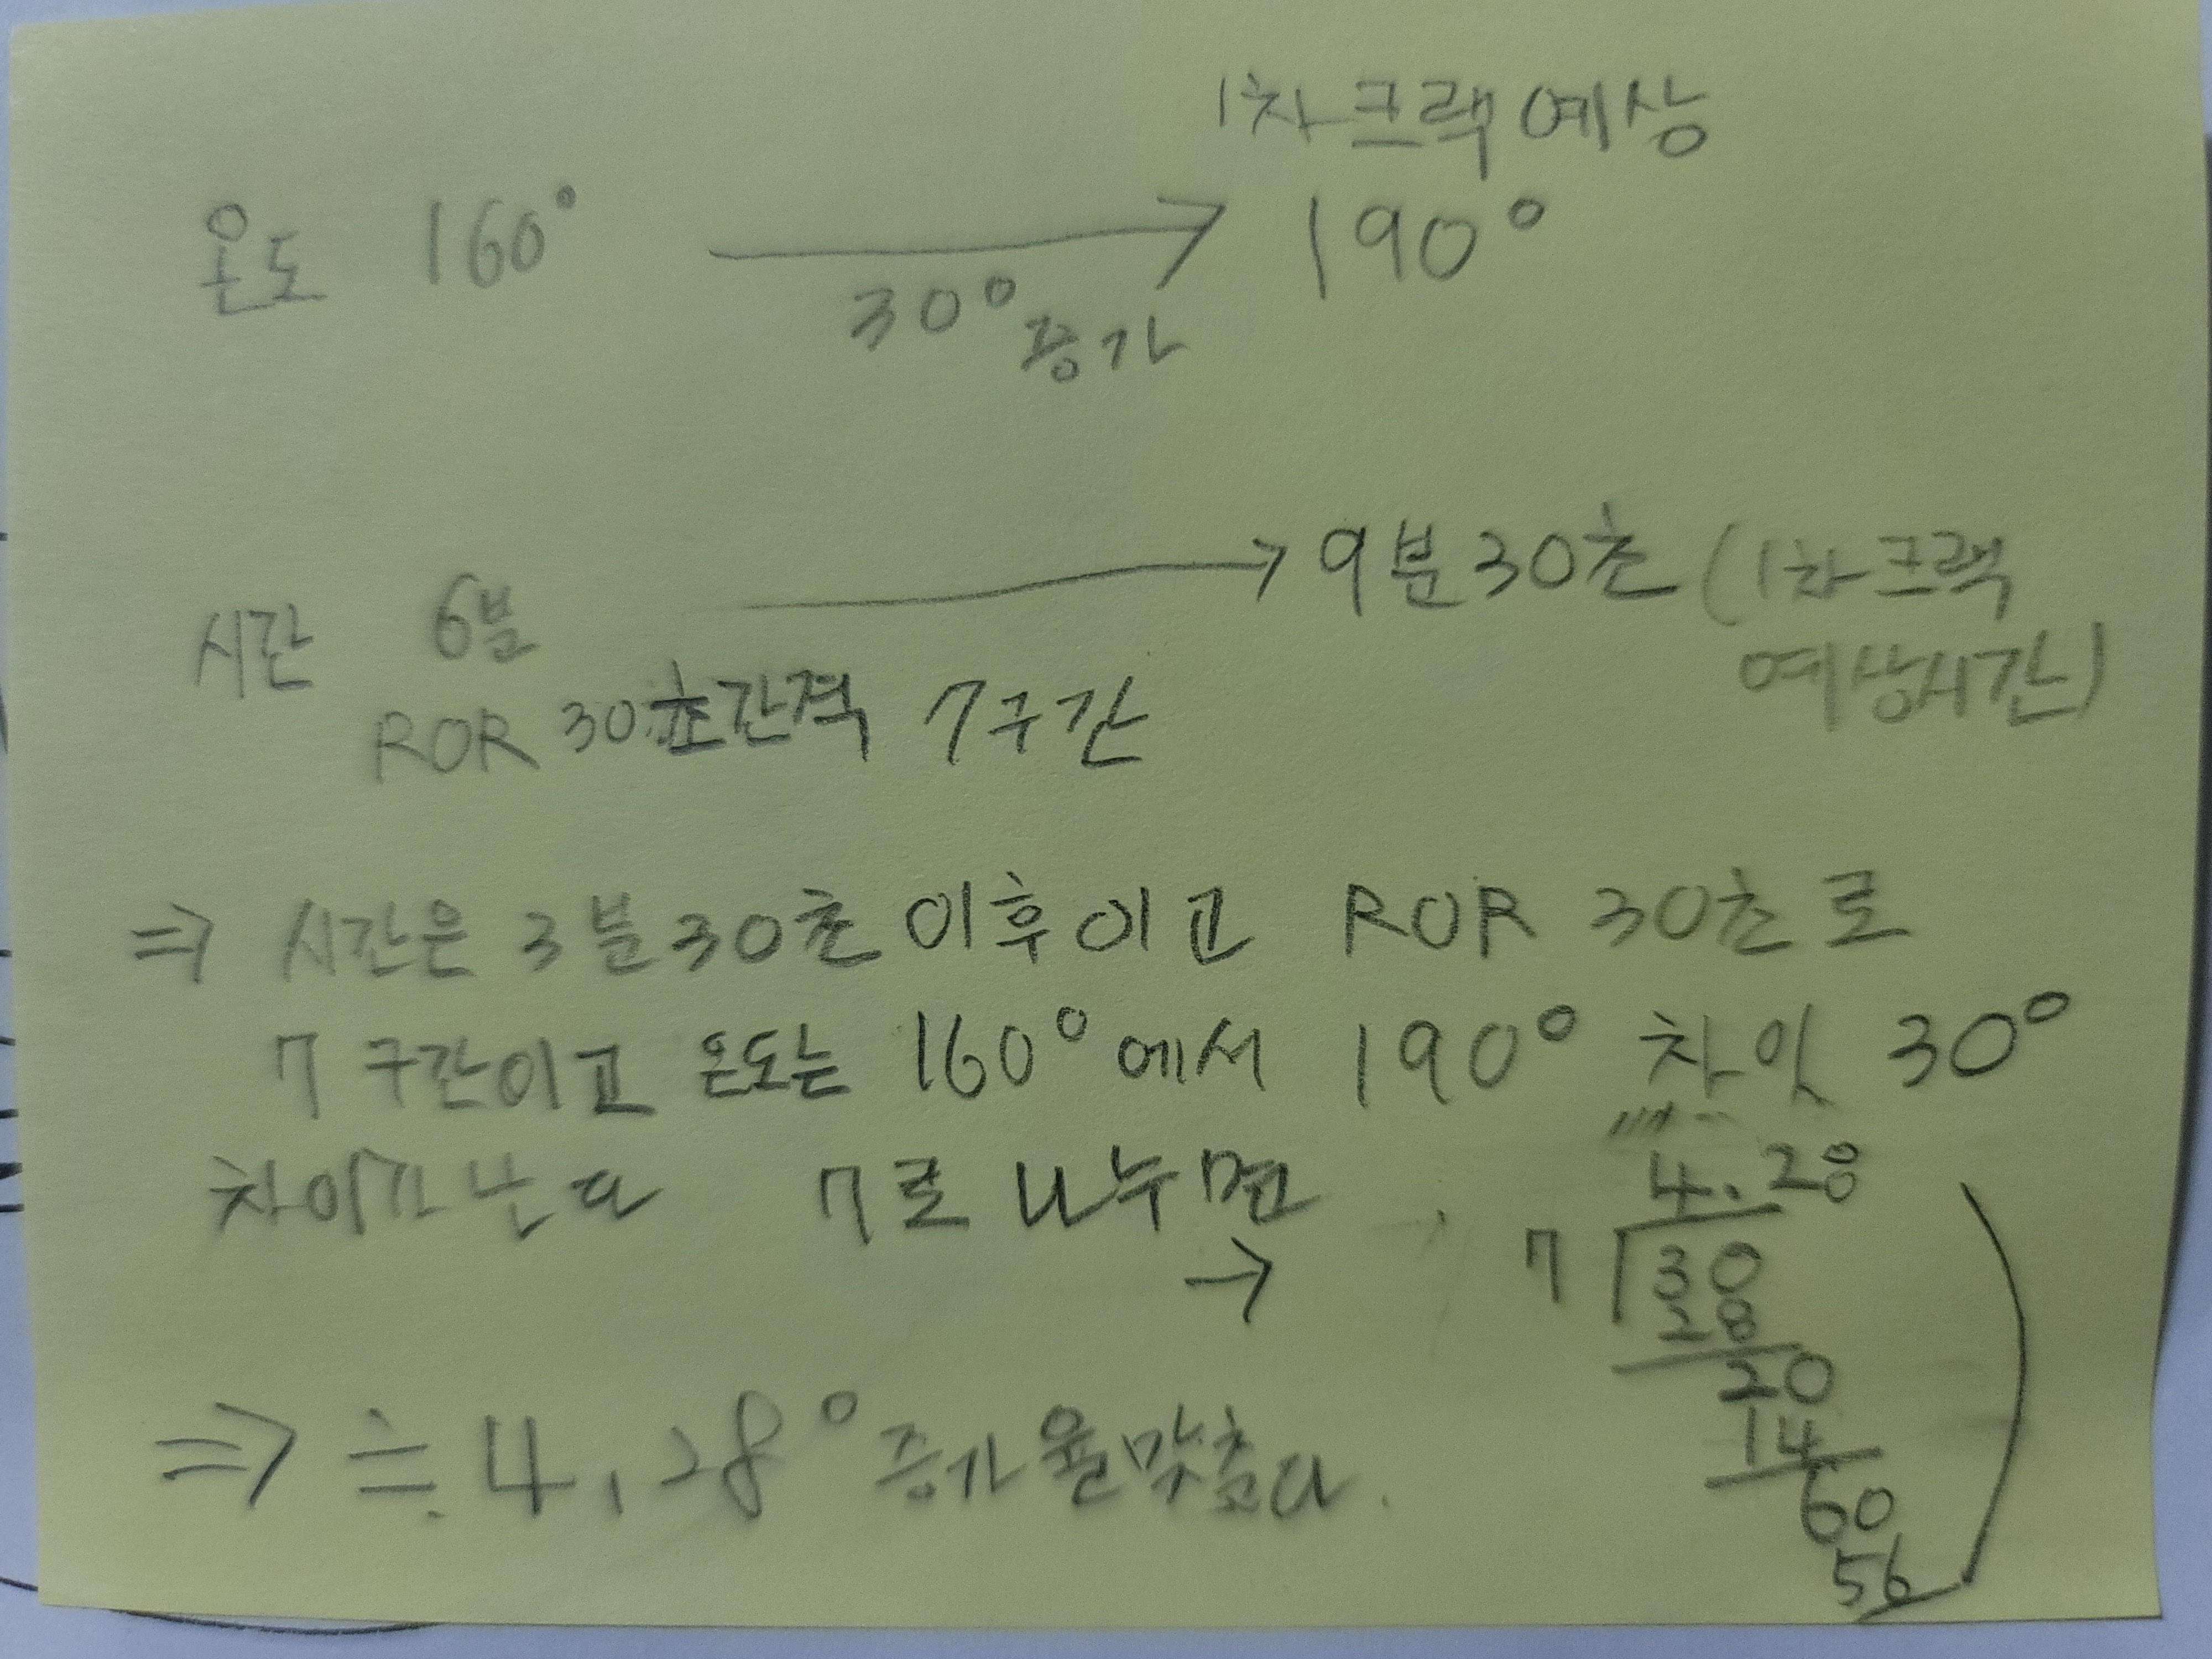 1차 크랙 예상
온도 160° → 190°
30° 증가
시간 6분 → 9분 30초 (1차 크랙
예상시간)
ROR 30초간격 7구간
⇒ 시간은 3분 30초 이후이고 ROR 30초로
7 구간이고 온도는 160°에서 190° 차잇 30°
차이가 난다 7로 나누면 →
4.28
7 30
28
20
14
60
56
⇒ ≒ 4.28° 증가율 맞춘다.